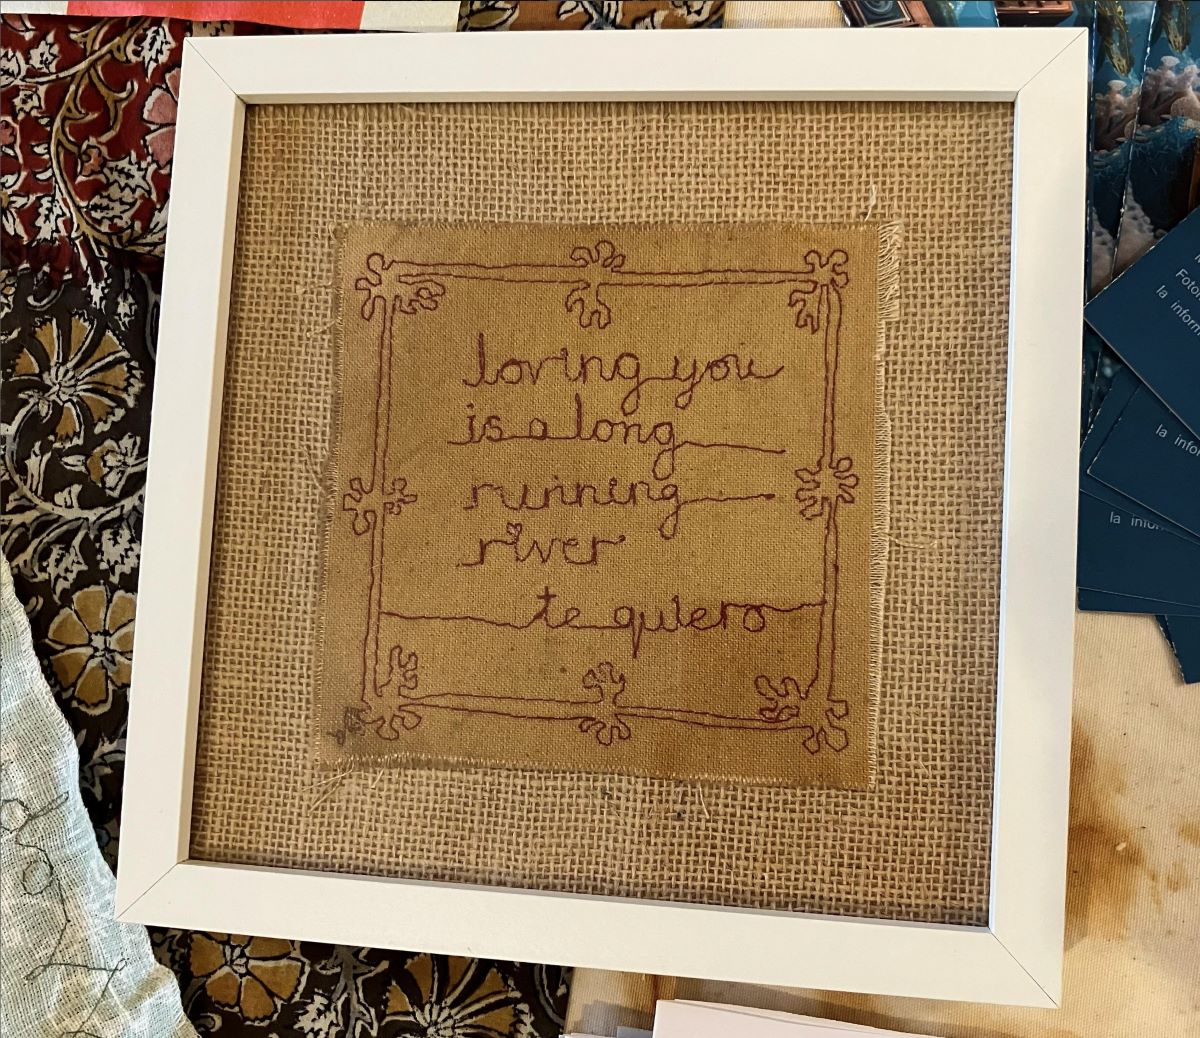 loving you
is a long
running
river
te quiero
Foto
la inform
la infor
la infor